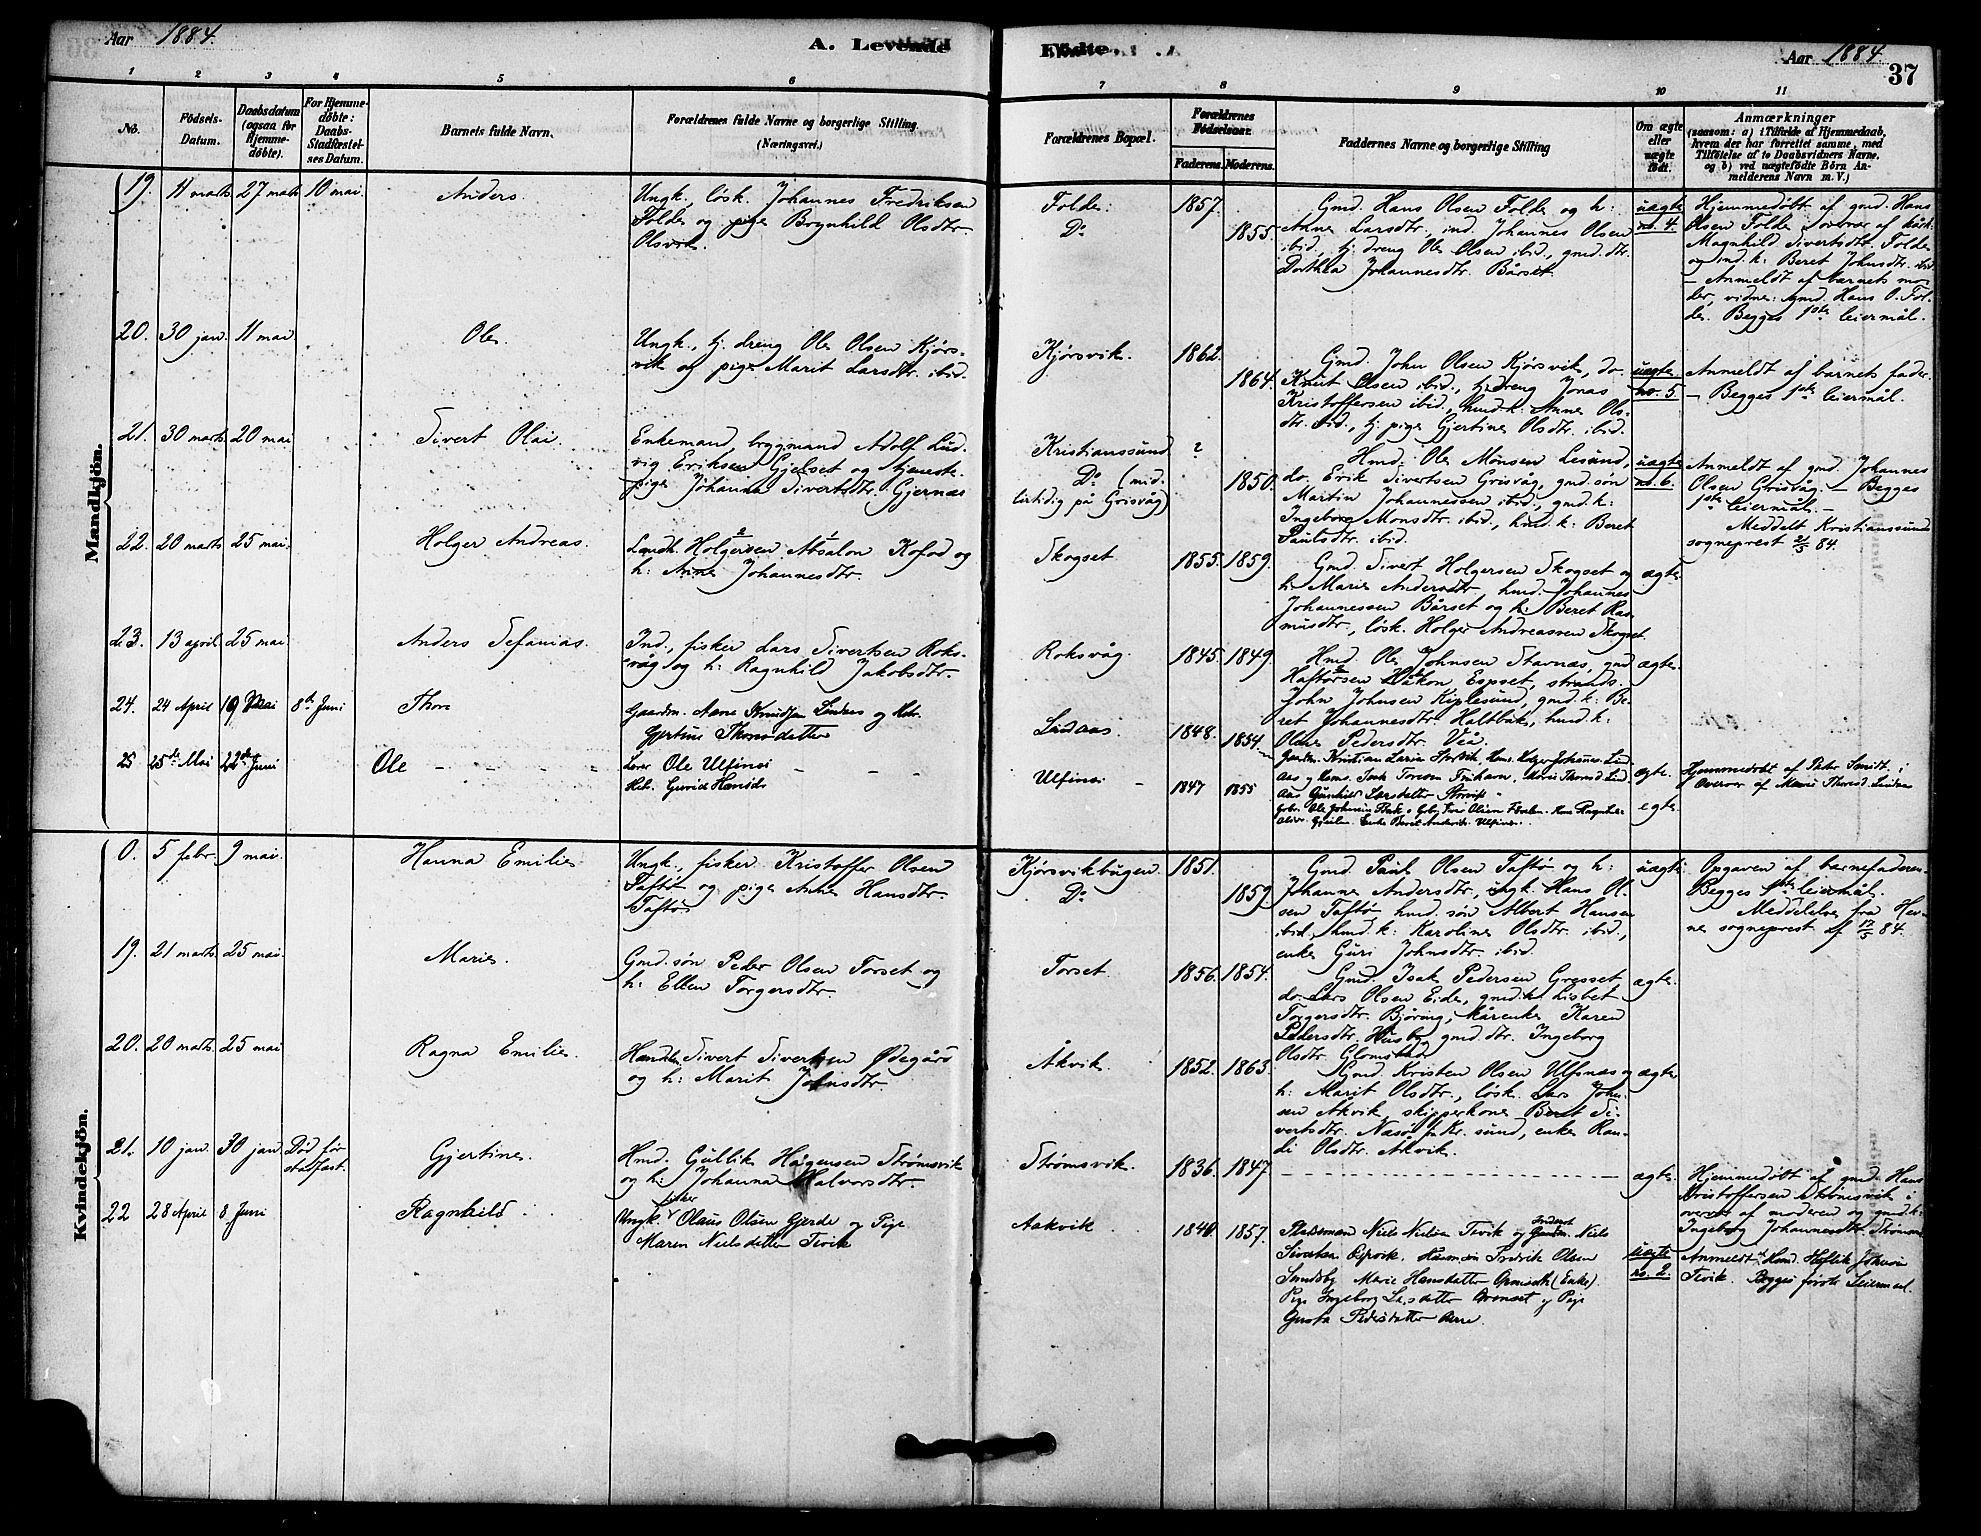 Aar 1884.
A. Levende
Fødte.
Aar 1884.
37
1 2 3 4 5 6 7 8 9 10 11
No.
Fødsels-
Datum.
Daabsdatum
(ogsaa for
Hjemme-
døbte).
For Hjemme-
døbte:
Daabs-
Stadfæstel-
ses Datum.
Barnets fulde Navn.
Forældrenes fulde Navne og borgerlige Stilling
(Næringsvei.)
Forældrenes Bopæl.
Forældrenes
Fødselsaar.
Faderens. Moderens.
Faddernes Navne og borgerlige Stilling
Om ægte
eller
uægte
født.
Anmærkninger
(saasom: a) i Tilfælde af Hjemmedaab,
hvem der har forrettet samme, med
Tilføielse af to Daabsvidners Navne,
og b) ved uægtefødte Børn An-
melderens Navn m. V.)
Mandkjön.
19. 11 marts 27 marts 10 mai. Anders.
Ungk., løsk. Johannes Fredriksen
Folde og pige Brynhild Olsdtr.
Olsvik.
Folde.
Do
1857.
1855.
Gmd. Hans Olsen Folde og h:
Anne Larsdtr., ind. Johannes Olsen
ibid., tj. dreng Ole Olsen ibid., gmd. dtr.
Dorthea Johannesdtr. Bårset.
uægte
no. 4.
Hjemmedøbt af gmd. Hans
Olsen Folde i overvær af kårk.
Magnhild Sivertsdtr. Folde
og ind. k: Beret Johnsdtr. ibid.
– Anmeldt af barnets mo-
der, vidne: gmd. Hans O. Fol-
de. Begges 1ste leiermål.
20. 30 jan. 11 mai Ole.
Ungk., tj. dreng Ole Olsen Kjørs-
vik og pige Marit Larsdtr. ibid.
Kjørsvik.
1862.
1864.
Gmd. John Olsen Kjørsvik, do.
Knut Olsen ibid., tj. dreng Jonas
Kristoffersen ibid., hmd. k: Anne Ols-
dtr. ibid., tj. pige Gjertine Olsdtr. ibid.
uægte
no. 5.
Anmeldt af barnets fader.
– Begges 1ste leiermål.
21. 30 marts 20 mai Sivert Olai.
Enkemand, bryggmand Adolf Lud-
vig Eriksen Gjelset og tjeneste-
pige Johanna Sivertsdtr. Gjernæs
Kristianssund
Do (mid-
lertidig på Grisvåg)
?
1850.
Hmd. Ole Monsen Lesund,
do. Erik Sivertsen Grisvåg, gmd. søn
Martin Johannessen ibid., gmd. k:
Ingeborg Monsdtr. ibid., hmd. k: Beret
Paulsdtr. ibid.
uægte
no. 6.
Anmeldt af gmd. Johannes
Olsen Grisvåg. – Begges
1ste leiermål. –
Meddelt Kristianssunds
sogneprest 21/5 84.
22. 20 marts 25 mai. Holger Andreas.
Landh. Holgersen Absalon Kofod og
h: Anne Johannesdtr.
Skogset
1855. 1859.
Gmd. Sivert Holgersen Skogset og
h: Marie Andersdtr., hmd. Johannes
Johannessen Bårset og h: Beret Ras-
musdtr., løsk. Holger Andreassen Skogset.
ægte
23. 13 april 25 mai. Anders Stefanias.
Ind., fisker Lars Sivertsen Roks-
våg og h: Ragnhild Jakobsdtr.
Roksvåg.
1845. 1849.
Hmd. Ole Johnsen Stavnæs, gmd
Haftorsen Håkon Espset, strands.
John Johnsen Kiplesund, gmd. k: Be-
ret Johannesdtr. Haltbak, hmd. k:
Oline Pedersdtr. Veå.
ægte.
24. 24 April 19 Mai 8de Juni Thore
Gaardm. Arne Knudsen Lindaas og Hstr.
Gjertine Thoresdatter
Lindaas
1848. 1854.
Gaardm. Kristian Larsen Storvik, Hans Holger Johannes. Lind-
aas
ægte.
Hjemmedøbt af Peter Smidt, i
Overvær af Marie Thoresd. Lindaas
25 25de Mai 22de Juni Ole
Lærer Ole Ulfsnøi
Hst. Gurid Hansdtr.
Ulfsnøi
1847 1855
egte
Kvindekjön.
0. 5 febr. 9 mai. Hanna Emilie.
Ungk., fisker Kristoffer Olsen
Taftø og pige Anne Hansdtr.
Taftø
Kjørsvikbugen.
Do
1851.
1859.
Gmd. Paul Olsen Taftø og h:
Johanne Andersdtr., ungk. Hans Ol-
sen Taftø, hmd. søn Albert Hansen
ibid., hmd. k: Karoline Olsdtr. ibid.,
enke Guri Johnsdtr. ibid.
uægte
Opgaven af barnefaderen.
Begges 1ste leiermål.
Meddelelse fra Hev-
ne sogneprest af 17/5 84.
19. 21 marts 25 mai. Marie.
Gmd. søn Peder Olsen Torset og
h: Ellen Torgersdtr.
Torset.
1856. 1854.
Gmd. Isak Pedersen Grosset
do. Lars Olsen Eide, gmd. k. Lisbet
Torgersdtr. Bjøring, kårenke Karen
Pedersdtr. Husby, gmd. dtr. Ingeborg
Olsdtr. Glomstad.
ægte.
20. 20 marts 25 mai Ragna Emilie.
Handels. Sivert Sivertsen Ødegård
og h: Marit Johnsdtr.
Åkvik.
1852. 1863.
Gmd. Kristen Olsen Ulfsnæs og
h: Marit Olsdtr., løsk. Lars John-
sen Åkvik, skipperkone Beret Si-
vertsdtr. Nasø, Kr. sund, enke Ran-
di Olsdtr. Åkvik.
ægte
21. 10 jan. 30 jan Død før
stadfæst. Gjertine.
Hmd. Gullik Hågensen Strømsvik
og h: Johanna Halvorsdtr.
Strømsvik.
1836. 1847.
ægte.
Hjemmedøbt af gmd. Hans
Kristoffersen Strømsvik i
overvær af moderen og gmd. k:
Ingeborg Johannesdtr. Strømsvik
22 28 April 8 Juni Ragnhild
Ungk. fisker Olaus Olsen Gjerde og Pige
Maren Nielsdatter Tevik
Aakvik
1840. 1857.
Pladsmand Niels Nielsen Tevik og Gaardm. Niels
Sivertsen Espvik. Husman Fredrik Olsen
Sundsby Marie Hansdatter (Enke).
Pige Ingeborg Larsdatter og Pige
Gusta Pedersdatter Aure.
uægte
no. 2.
Anmeldt af Hmd. Johnsen
Tevik. Begges første Leiermaal.